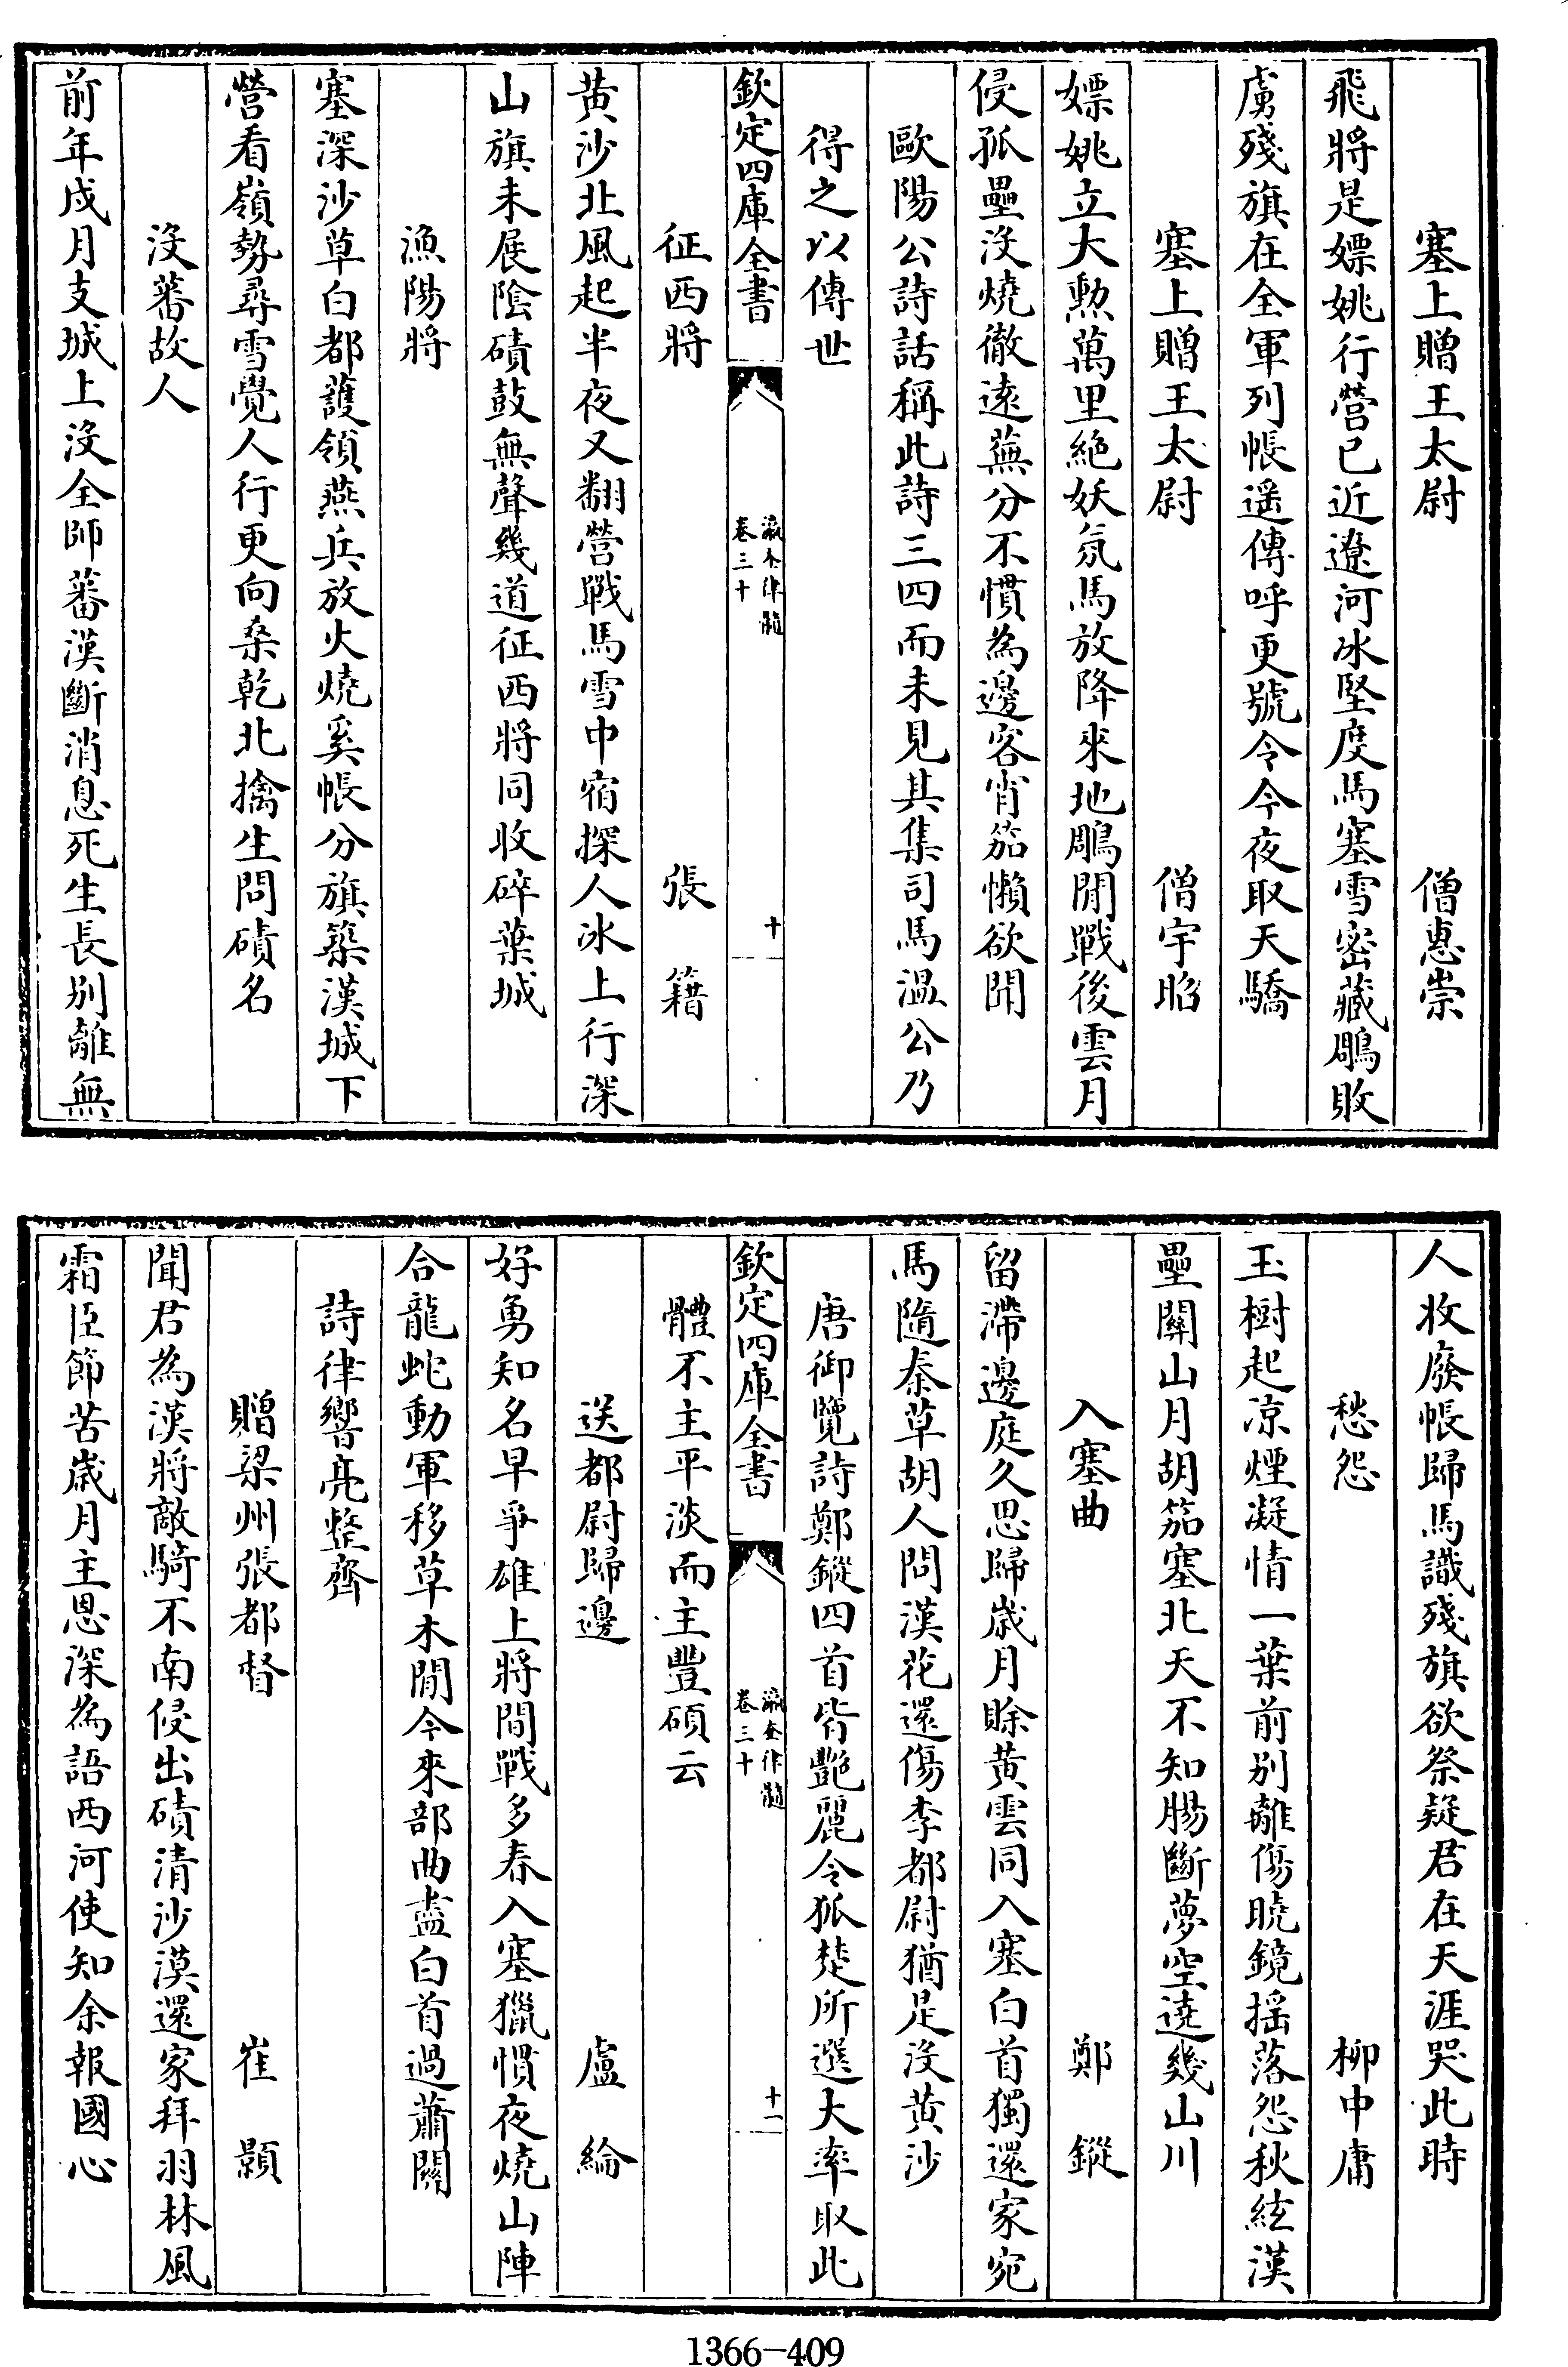 塞上贈王太尉　僧惠崇
飛將是嫖姚行營已近遼河冰堅度馬塞雪密藏鵰敗
虜殘旗在全軍列帳遥傳呼更號令今夜取天驕
塞上贈王太尉　僧宇昭
嫖姚立大勲萬里絶妖氛馬放降來地鵰閒戰後雲月
侵孤壘沒燒徹遠蕪分不慣為邊客宵笳懶欲聞
歐陽公詩話稱此詩三四而未見其集司馬温公乃
得之以傳世
欽定四庫全書
瀛奎律髓
卷三十
十
征西將　張籍
黄沙北風起半夜又翻營戰馬雪中宿探人冰上行深
山旗未展陰磧鼓無聲幾道征西將同收碎葉城
漁陽將
塞深沙草白都䕶領燕兵放火燒奚帳分旗築漢城下
營看嶺勢尋雪覺人行更向桑乾北擒生問磧名
沒蕃故人
前年戍月支城上沒全師蕃漢斷消息死生長别離無
人收廢帳歸馬識殘旗欲祭疑君在天涯哭此時
愁怨　柳中庸
玉樹起凉煙凝情一葉前别離傷曉鏡揺落怨秋絃漢
壘關山月胡笳塞北天不知腸斷夢空遶幾山川
入塞曲　鄭鏦
留滯邊庭久思歸歲月賒黄雲同入塞白首獨還家宛
馬隨秦草胡人問漢花還傷李都尉猶是沒黄沙
唐御覽詩鄭鏦四首皆艷麗令狐楚所選大率取此
欽定四庫全書
瀛奎律髓
卷三十
十一
體不主平淡而主豐碩云
送都尉歸邊　盧綸
好勇知名早爭雄上將間戰多春入塞獵慣夜燒山陣
合龍蛇動軍移草木閒今來部曲盡白首過蕭關
詩律響亮整齊
贈梁州張都督　崔顥
聞君為漢將敵騎不南侵出磧清沙漠還家拜羽林風
霜臣節苦歲月主恩深為語西河使知余報國心
1366-409